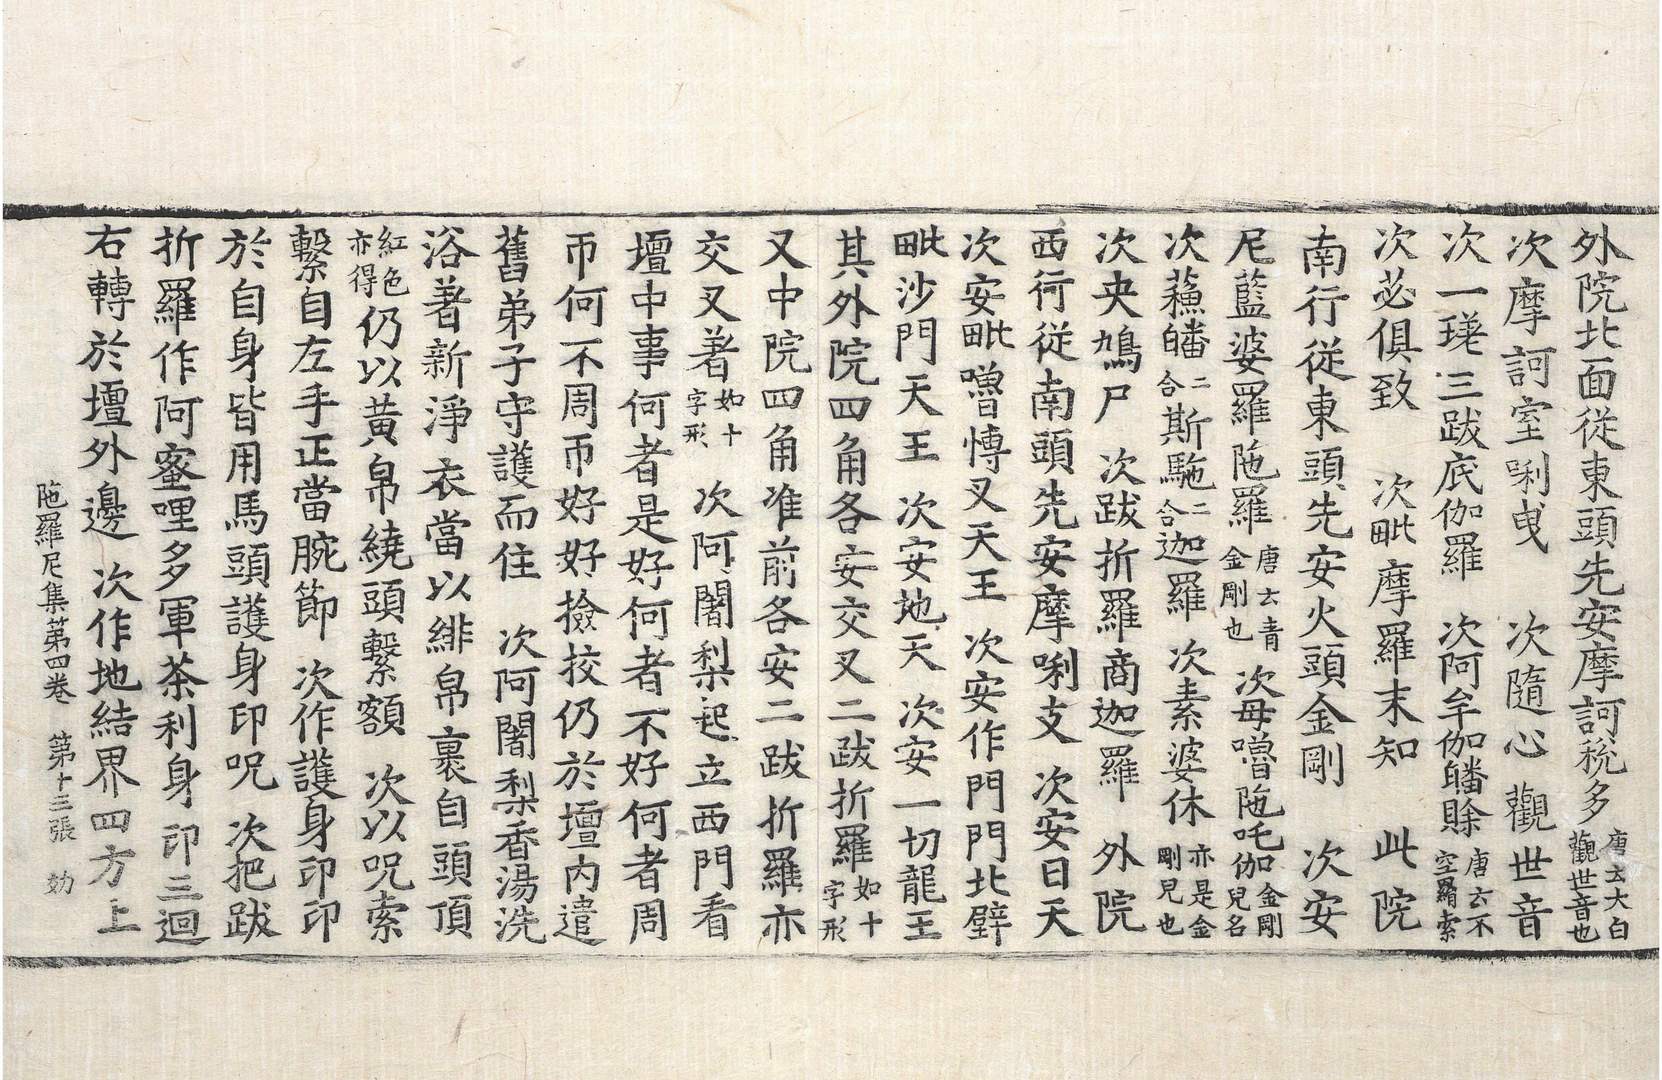 外院北面從東頭先安摩訶稅多唐云大白觀世音也
次摩訶室唎曳 次隨心觀世音
次一瑳三跋底伽羅 次阿牟伽皤賖唐云不空羂索
次苾俱致 次毗摩羅末知 此院
南行從東頭先安火頭金剛 次安
尼藍婆羅陁羅唐云青金剛也次母嚕陁吒伽金剛兒名
次蘓皤二合斯䭾二合迦羅 次素婆休亦是金剛兒也
次央鳩尸 次跋折羅商迦羅 外院
西行從南頭先安摩唎支 次安日天
次安毗嚕博叉天王 次安作門門北壁
毗沙門天王 次安地天 次安一切龍王
其外院四角各安交叉二跋折羅如十字形
又中院四角准前各安二跋折羅亦
交叉著如十字形 次阿闍梨起立西門看
壇中事何者是好何者不好何者周
帀何不周帀好好撿挍仍於壇內遣
舊弟子守護而住 次阿闍梨香湯洗
浴著新淨衣當以緋帛裹自頭頂
紅色亦得仍以黃帛繞頭繫額 次以呪索
繫自左手正當腕節 次作護身印印
於自身皆用馬頭護身印呪 次把跋
折羅作阿蜜哩多軍荼利身印三迴
右轉於壇外邊 次作地結界四方上
陁羅尼集第四卷 第十三張 劾